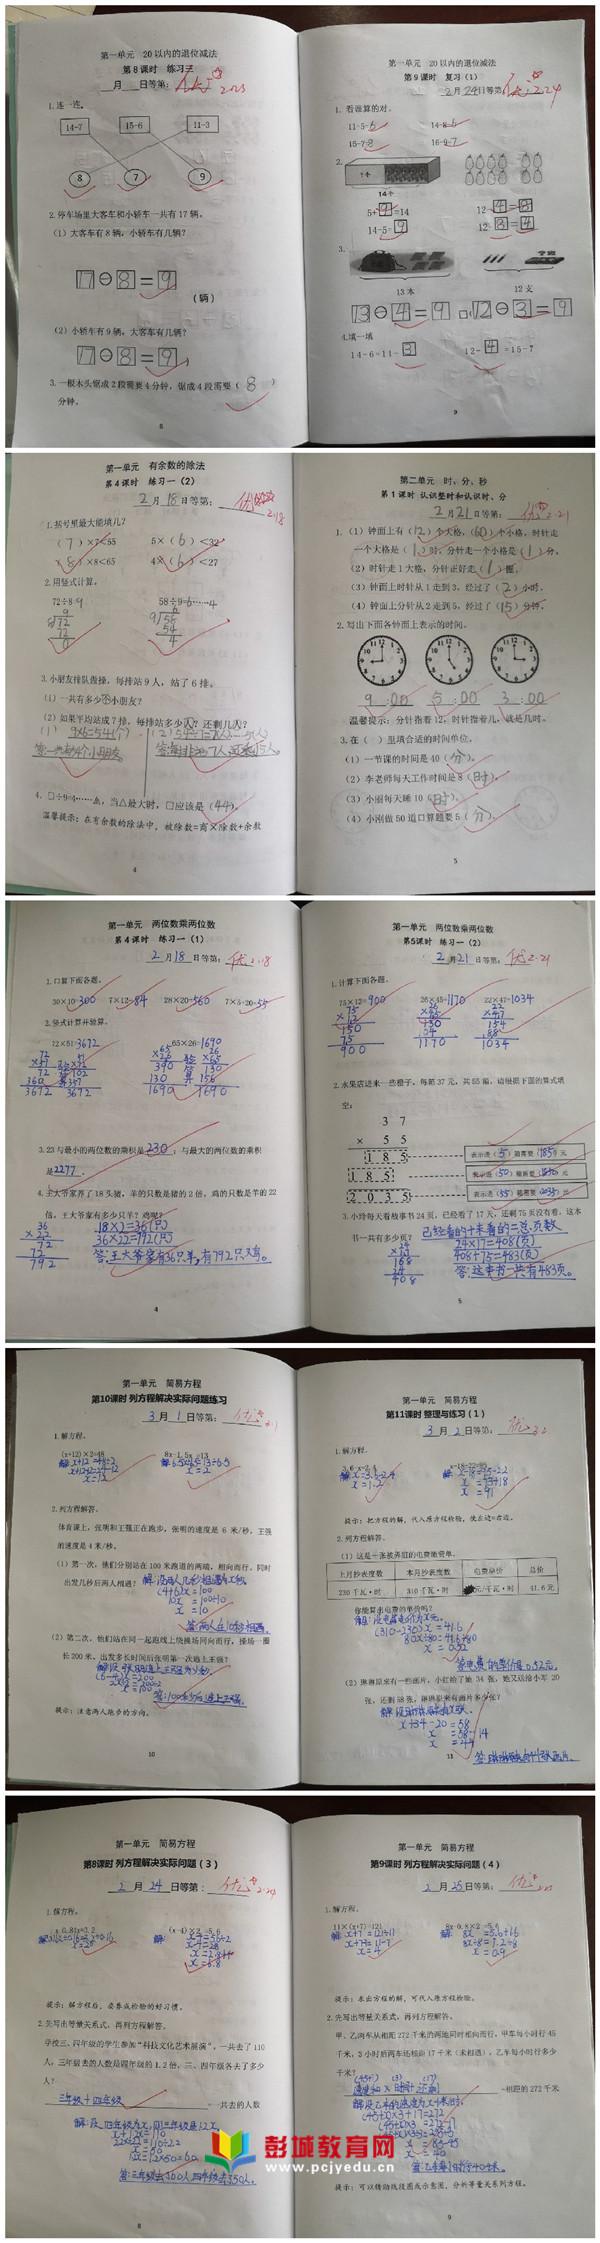 第一单元 20以内的退位减法
第8课时 练习三
月 日等第:
1.连一连。
14-7 15-6 11-3
8 7 9
2.停车场里大客车和小轿车一共有17辆。
(1)大客车有8辆,小轿车有几辆?
17-8=9
(辆)
(2)小轿车有9辆,大客车有几辆?
17-8=9
3.一根木头锯成2段需要4分钟,锯成4段需要( 8 )
分钟。
第一单元 20以内的退位减法
第9课时 复习(1)
2月24日等第:
1.看谁算的对。
11-5=6 14-8=6
15-7=8 16-9=7
2.
14个
5+9=14 12-4=8
14-5=9 12-8=4
3.
13本 12支
13-4=9 12-3=9
4.填一填
14-6=11-3 12-4=15-7
9
第一单元 有余数的除法
第4课时 练习一(2)
2月18日等第: 优 2.18
1.括号里最大能填几?
(7)×7<55 5×(6)<32
(8)×8<65 4×(6)<27
2.用竖式计算。
72÷8=9 58÷9=6……4
3.小朋友排队做操,每排站9人,站了6排。
(1)一共有多少个小朋友?
(2)如果平均站成7排,每排站多少人?还剩几人?
(1) 9×6=54(个)
4.□÷9=4……△,当△最大时,□应该是(44)。
温馨提示:在有余数的除法中,被除数=商×除数+余数
4
第二单元 时、分、秒
第1课时 认识整时和认识时、分
2月21日等第: 优 2.21
1.(1)钟面上有(12)个大格,(60)个小格,时针走
一个大格是(1)时,分针走一个小格是(1)分。
(2)时针走1大格,分针正好走(1)圈。
(3)钟面上时针从1走到3,经过了(2)小时。
(4)钟面上分针从2走到5,经过了(15)分钟。
2.写出下面各钟面上表示的时间。
9:00 5:00 3:00
温馨提示:分针指着12,时针指着几,就是几时。
3.在( )里填合适的时间单位。
(1)一节课的时间是40(分)。
(2)李老师每天工作时间是8(时)。
(3)小丽每天睡10(时)。
(4)小刚做50道口算题要5(分)。
5
第一单元 两位数乘两位数
第4课时 练习一(1)
2月18日等第: 优 2.18
1.口算下面各题。
30×10=300 7×12=84 28×20=560 7×5+20=55
2.竖式计算并验算。
72×51=3672 65×26=1690
3.23与最小的两位数的乘积是230;与最大的两位数的乘积
是2277。
4.王大爷家养了18头猪,羊的只数是猪的2倍,鸡的只数是羊的22
倍,王大爷家有多少只羊?鸡呢?
18×2=36(只)
36×22=792(只)
答:王大爷家有36只羊,有792只鸡。
4
第一单元 两位数乘两位数
第5课时 练习一(2)
2月21日等第: 优 2.21
1.计算下面各题。
75×12=900 26×45=1170 22×47=1034
2.水果店进来一些橙子,每箱37元,共55箱,请根据下面的算式填
空:
3 7
× 5 5
1 8 5 表示进(5)箱需要(185)元
1 8 5 表示进(50)箱需要(1850)元
2 0 3 5 表示进(55)箱需要(2035)元
3.小玲每天看故事书24页,已经看了17天,还剩75页没有看,这本
书一共有多少页?
已经看的+未看的=总页数
24×17=408(页)
408+75=483(页)
答:这本书一共有483页。
5
第一单元 简易方程
第10课时 列方程解决实际问题练习
3月1日等第:
1.解方程。
(x+12)×2=48 8x-1.5x=13
2.列方程解答。
体育课上,张明和王强正在跑步,张明的速度是 6 米/秒,王强
的速度是4米/秒。
(1)第一次,他们分别站在100米跑道的两端,相向而行,同时
出发几秒后两人相遇?
(4+6)x=100
10x=100÷10
x=10
答:两人在10秒后相遇。
(2)第二次,他们站在同一起跑线上绕操场同向而行,操场一圈
长200米,出发多长时间后张明第一次追上王强?
答:100秒后追上王强。
提示:注意两人跑步的方向。
10
第一单元 简易方程
第11课时 整理与练习(1)
3月2日等第: 优 3.2
1.解方程。
提示:把方程的解,代入原方程检验,使左边=右边。
2.列方程解答。
(1)这是一张被弄脏的电费缴费单。
上月抄表度数 本月抄表度数 电费单价 总价
230千瓦·时 310千瓦·时 元/千瓦·时 41.6元
你能算出电费的单价吗?
(310-230)x=41.6
x=0.52
答:电费的单价是0.52元。
(2)琳琳原来有一些画片,小红给了她 34 张,她又送给小军 20
张,还剩58张,琳琳原来有画片多少张?
x+34-20=58
x=58-14
x=44
11
第一单元 简易方程
第8课时 列方程解决实际问题(3)
2月24日等第: 优 2.24
1.解方程。
(x-4)×2=5.6
提示:解方程后,要养成检验的好习惯。
2.先写出等量关系式,再列方程解答。
学校三、四年级的学生参加“科技文化艺术展演”,一共去了110
人,三年级去的人数是四年级的1.2倍,三、四年级各去了多少
人?
三年级+四年级=一共去的人数
8
第一单元 简易方程
第9课时 列方程解决实际问题(4)
2月25日等第:
1.解方程。
11×(x+7)=121 8x-0.8×2=5.6
提示:求出方程的解,可代入原方程检验。
2.先写出等量关系式,再列方程解答。
甲、乙两车从相距272千米的两地同时相向而行,甲车每小时行45
千米,3小时后两车还相距17千米(未相遇),乙车每小时行多少
千米?
速度和×时间+还剩=相距的272千米
(45+x)×3+17=272
提示:可以借助线段图或示意图,分析等量关系列方程。
9
彭城教育网
www.pcjyedu.cn